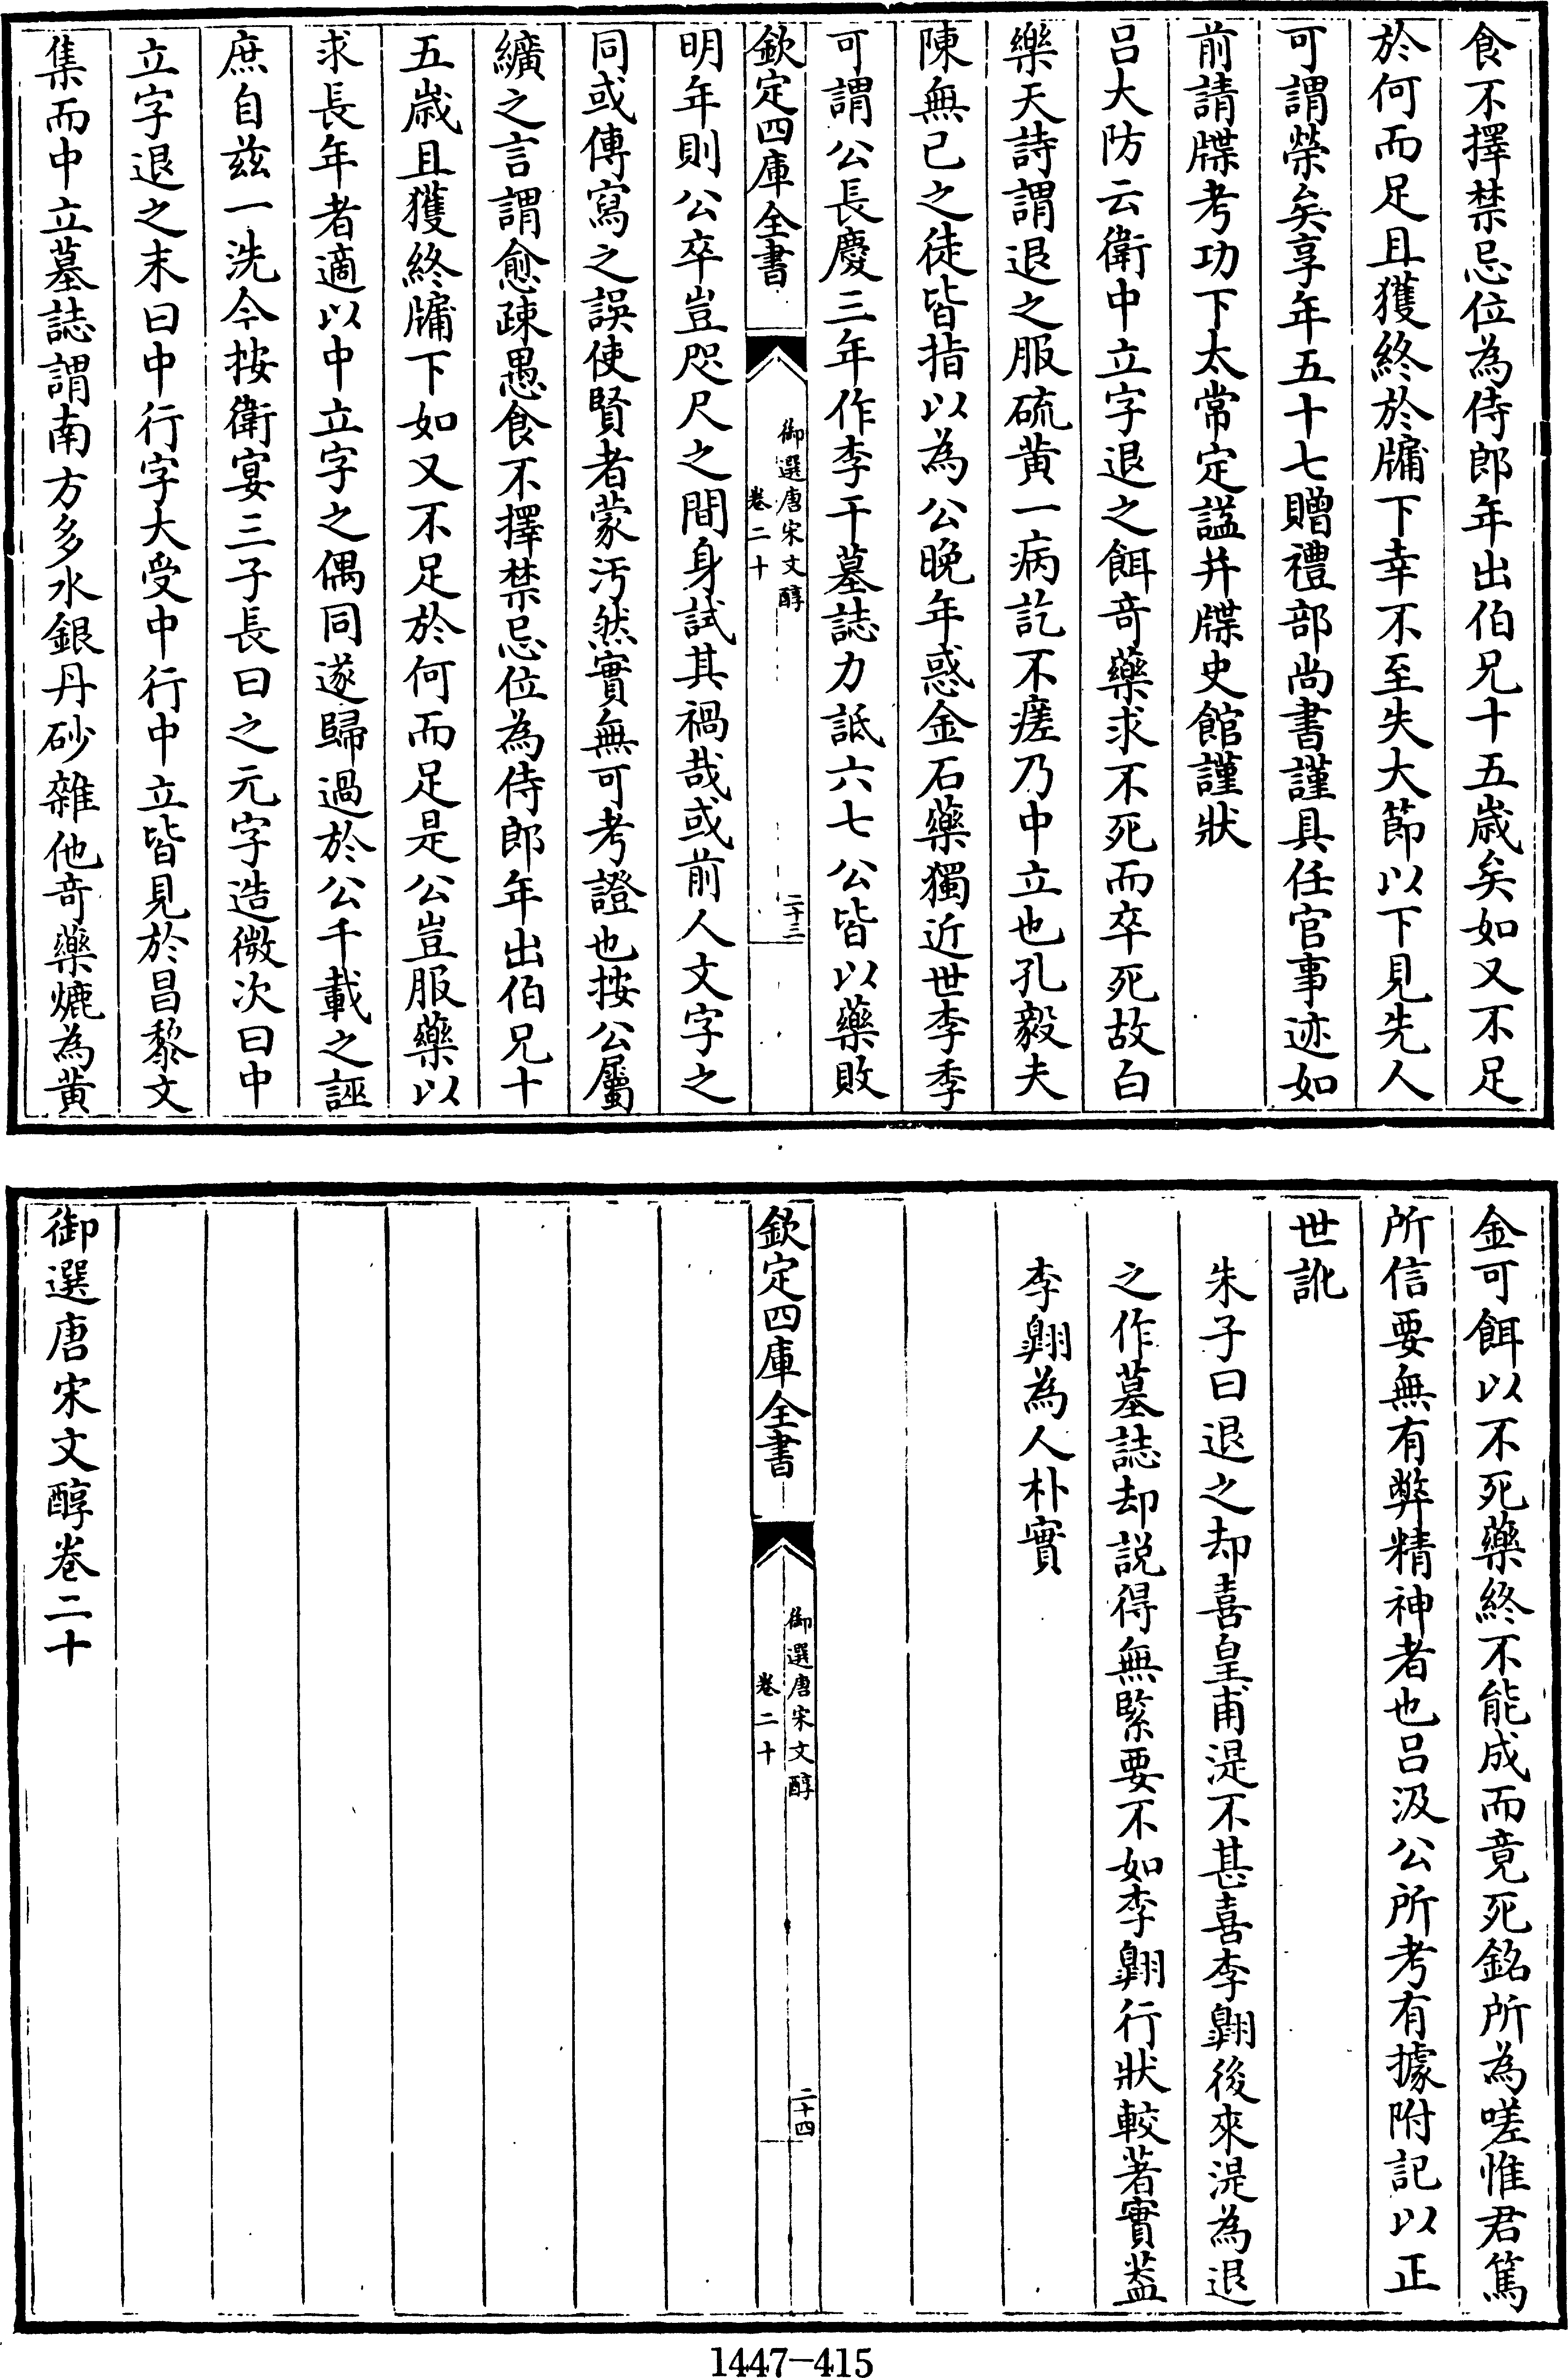 食不擇禁忌位為侍郎年出伯兄十五歲矣如又不足
於何而足且獲終於牖下幸不至失大節以下見先人
可謂榮矣享年五十七贈禮部尚書謹具任官事迹如
前請牒考功下太常定諡并牒史館謹狀
呂大防云衛中立字退之餌奇藥求不死而卒死故白
樂天詩謂退之服硫黃一病訖不痊乃中立也孔毅夫
陳無已之徒皆指以為公晚年惑金石藥獨近世李季
可謂公長慶三年作李干墓誌力詆六七公皆以藥敗
欽定四庫全書
御選唐宋文醇
卷二十
二十三
明年則公卒豈咫尺之間身試其禍哉或前人文字之
同或傳寫之誤使賢者蒙汚然實無可考證也按公屬
纊之言謂愈疎愚食不擇禁忌位為侍郎年出伯兄十
五歲且獲終牖下如又不足於何而足是公豈服藥以
求長年者適以中立字之偶同遂歸過於公千載之誣
庶自茲一洗今按衛宴三子長曰之元字造微次曰中
立字退之末曰中行字大受中行中立皆見於昌黎文
集而中立墓誌謂南方多水銀丹砂雜他奇藥爊為黃
金可餌以不死藥終不能成而竟死銘所為嗟惟君篤
所信要無有弊精神者也呂汲公所考有據附記以正
世訛
朱子曰退之却喜皇甫湜不甚喜李翺後來湜為退
之作墓誌却説得無緊要不如李翺行狀較著實葢
李翺為人朴實
欽定四庫全書
御選唐宋文醇
卷二十
二十四
御選唐宋文醇卷二十
1447-415